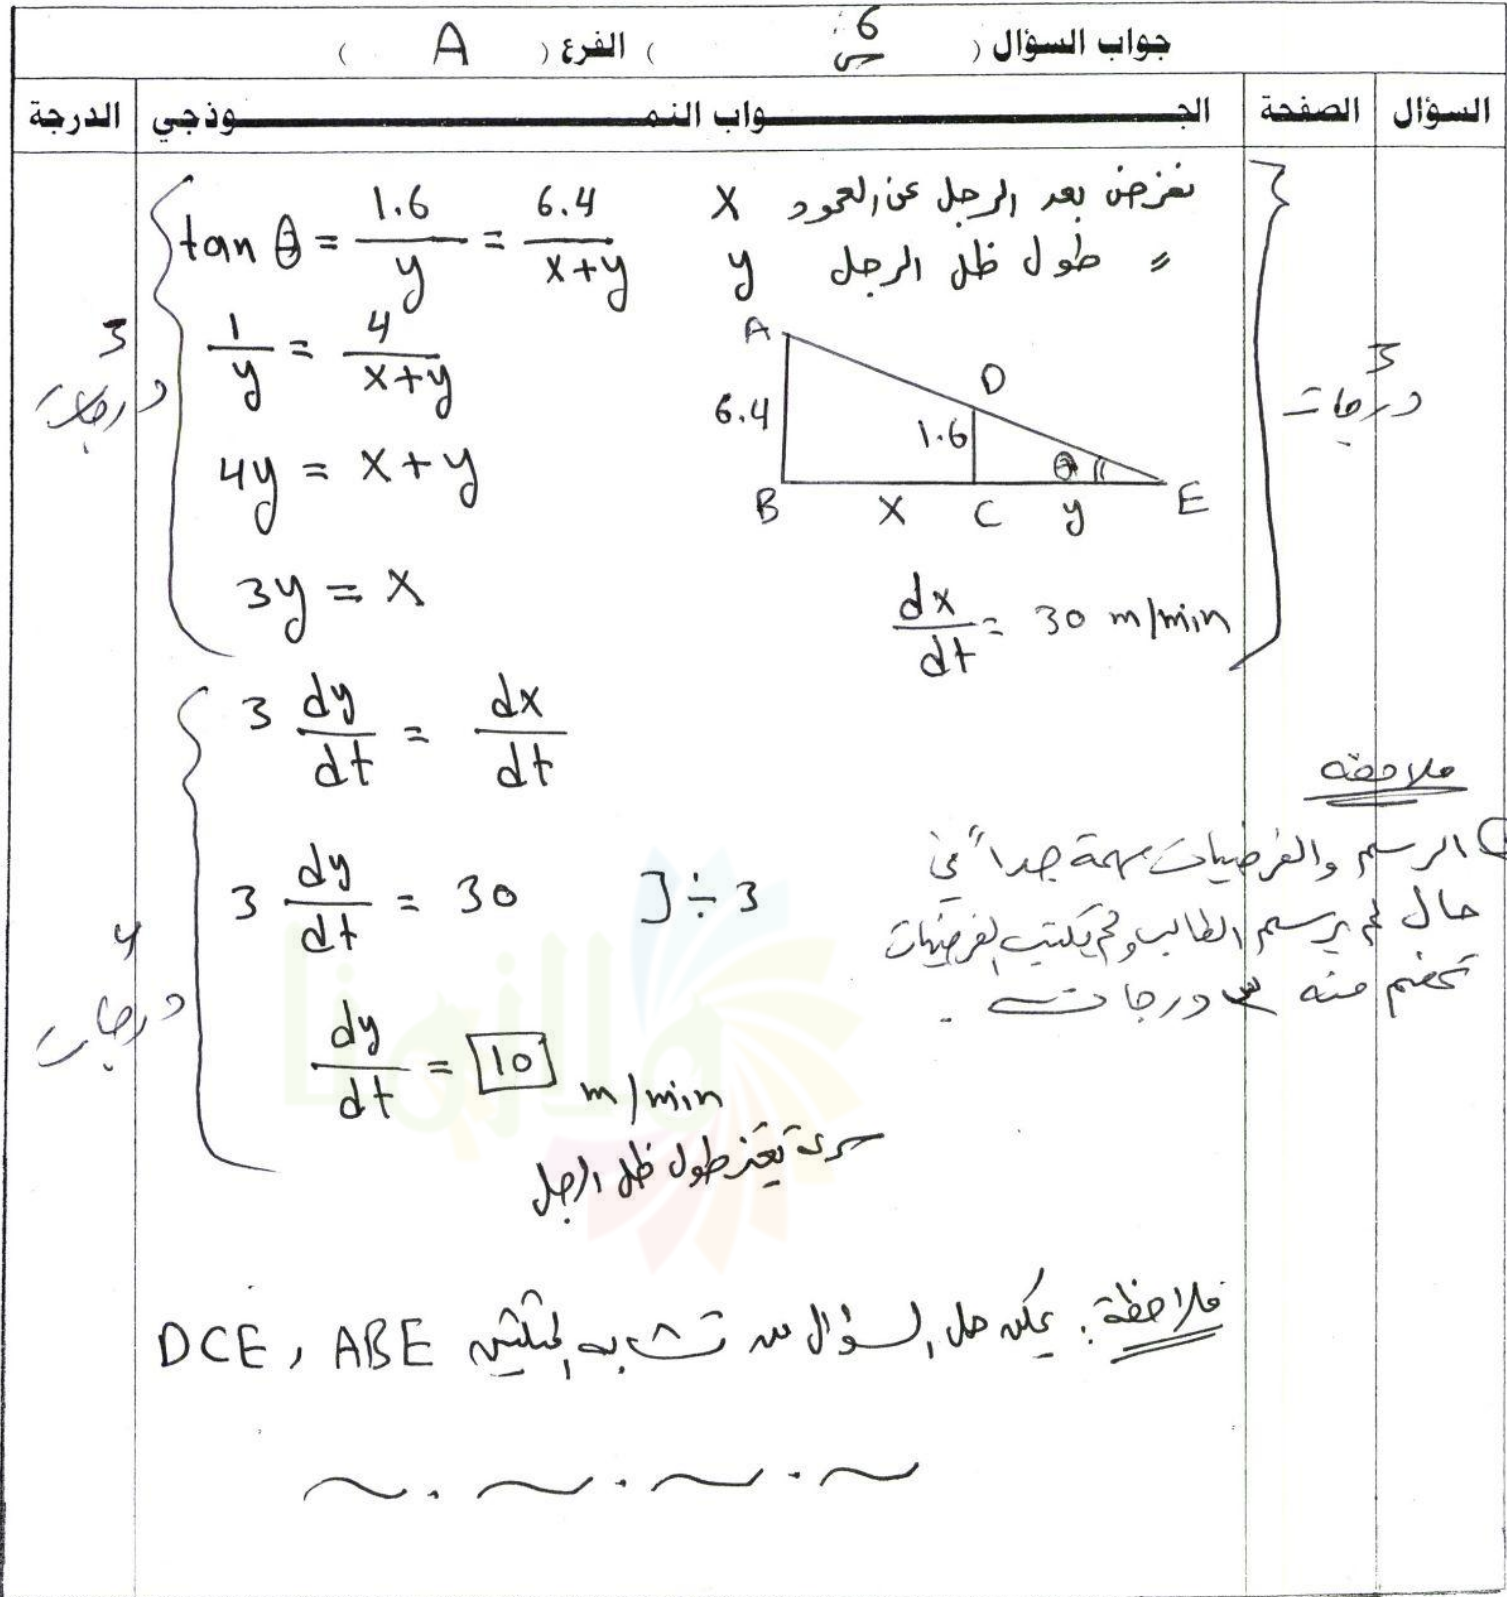 جواب السؤال ( س6 ) الفرع ( A )
السؤال الصفحة الجــواب النمــوذجي الدرجة
نفرض بعد الرجل عن العمود x
= طول ظل الرجل y
tan θ = 1.6/y = 6.4/(x+y)
1/y = 4/(x+y)
4y = x+y
3y = x
A
D
6.4
1.6
θ
B x C y E
dx/dt = 30 m/min
3 درجات
3 درجات
3 dy/dt = dx/dt
3 dy/dt = 30 ] ÷ 3
dy/dt = 10 m/min
سرعة تغير طول ظل الرجل
4 درجات
ملاحظة
الرسم والفرضيات مهمة جداً في
حال لم يرسم الطالب ولم يكتب الفرضيات
تخصم منه ٣ درجات .
ملاحظة : يمكن حل السؤال من تشابه المثلثين DCE , ABE
ملازمنا